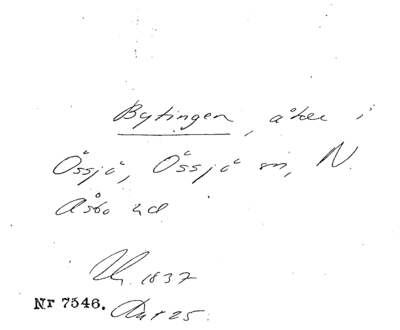 Bytingen, åker i
Össjö, Össjö sn, N.
Åsbo hd
1837
Nr 7546.